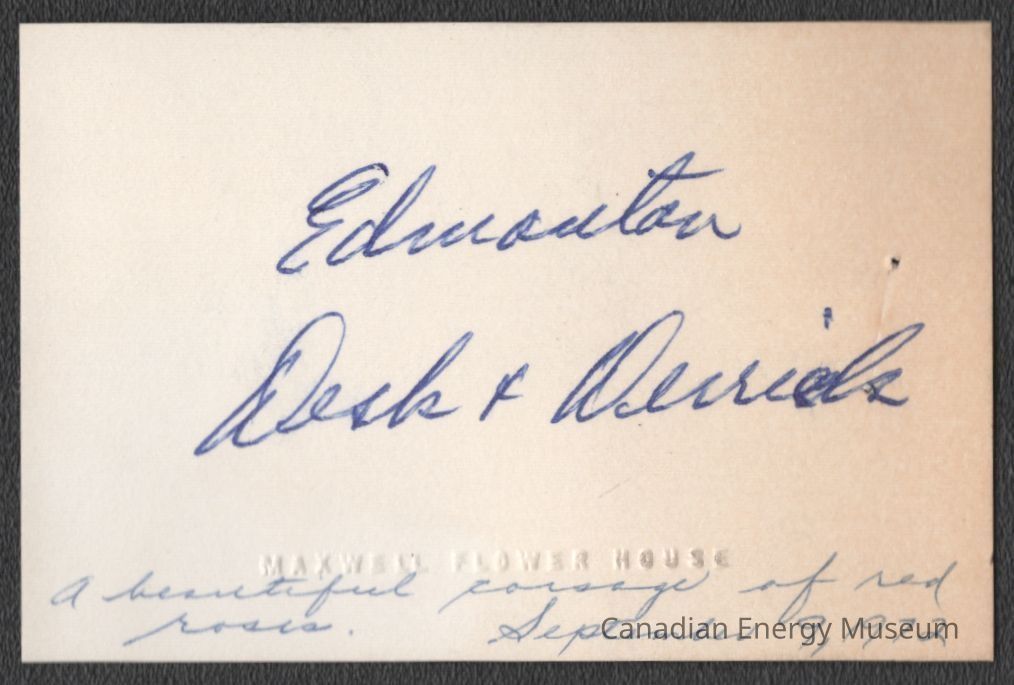 Edmonton
Desk & Derrick
MAXWELL FLOWER HOUSE
A beautiful corsage of red
roses. September
Canadian Energy Museum